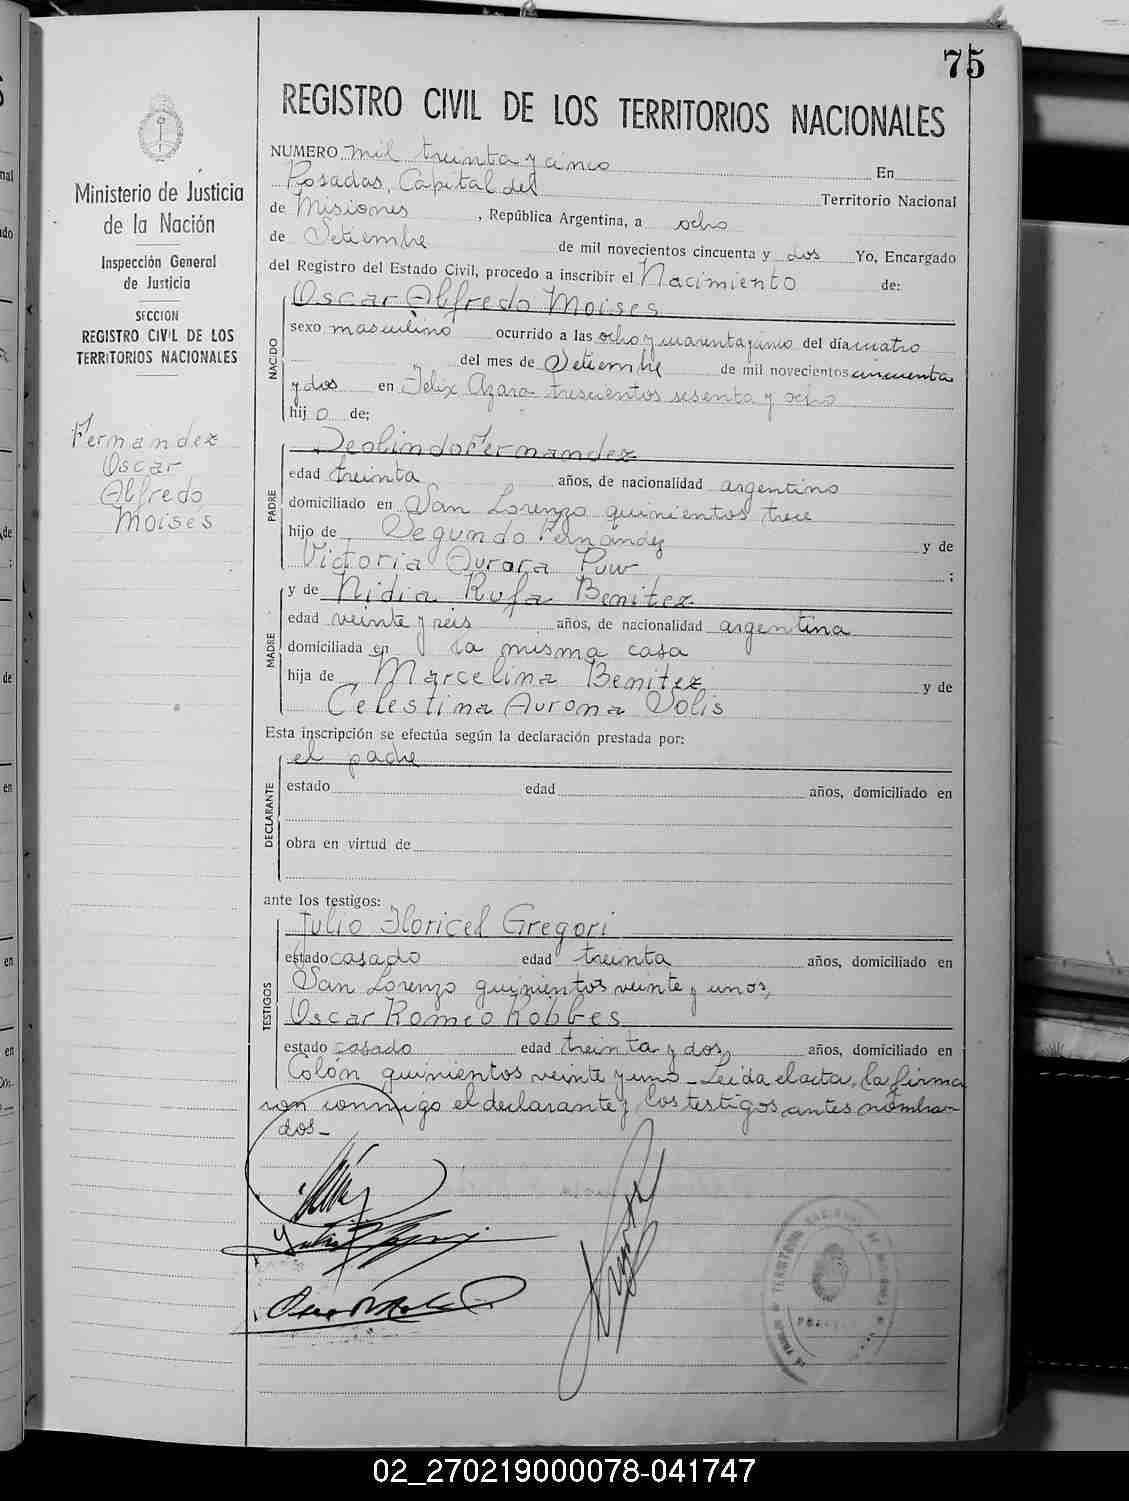 75
REGISTRO CIVIL DE LOS TERRITORIOS NACIONALES
Ministerio de Justicia
de la Nación
Inspección General
de Justicia
SECCION
REGISTRO CIVIL DE LOS
TERRITORIOS NACIONALES
Fernandez
Oscar
Alfredo
Moisés
NUMERO mil treinta y cinco En
Posadas, Capital del Territorio Nacional
de Misiones, República Argentina, a ocho
de Setiembre de mil novecientos cincuenta y dos Yo, Encargado
del Registro del Estado Civil, procedo a inscribir el Nacimiento de:
NACIDO
Oscar Alfredo Moises
sexo masculino ocurrido a las ocho y cuarenta y cinco del día cuatro
del mes de Setiembre de mil novecientos cincuenta
y dos en Felix Azara trescientos sesenta y ocho
hijo de;
PADRE
Deolindo Fernandez
edad treinta años, de nacionalidad argentino
domiciliado en San Lorenzo quinientos trece
hijo de Segundo Fernández y de
Victoria Aurora ;
MADRE
y de Nidia Rufa Benitez
edad veinte y seis años, de nacionalidad argentina
domiciliada en la misma casa
hija de Marcelina Benitez y de
Celestina Aurona Solis
Esta inscripción se efectúa según la declaración prestada por:
DECLARANTE
el padre
estado edad años, domiciliado en
obra en virtud de
ante los testigos:
TESTIGOS
Julio Floricel Gregori
estado casado edad treinta años, domiciliado en
San Lorenzo quinientos veinte y unos,
Oscar Romeo Robbes
estado casado edad treinta y dos, años, domiciliado en
Colón quinientos veinte y uno - Leída el acta, la firma
ron conmigo el declarante y los testigos antes nombra-
dos -
02_270219000078-041747